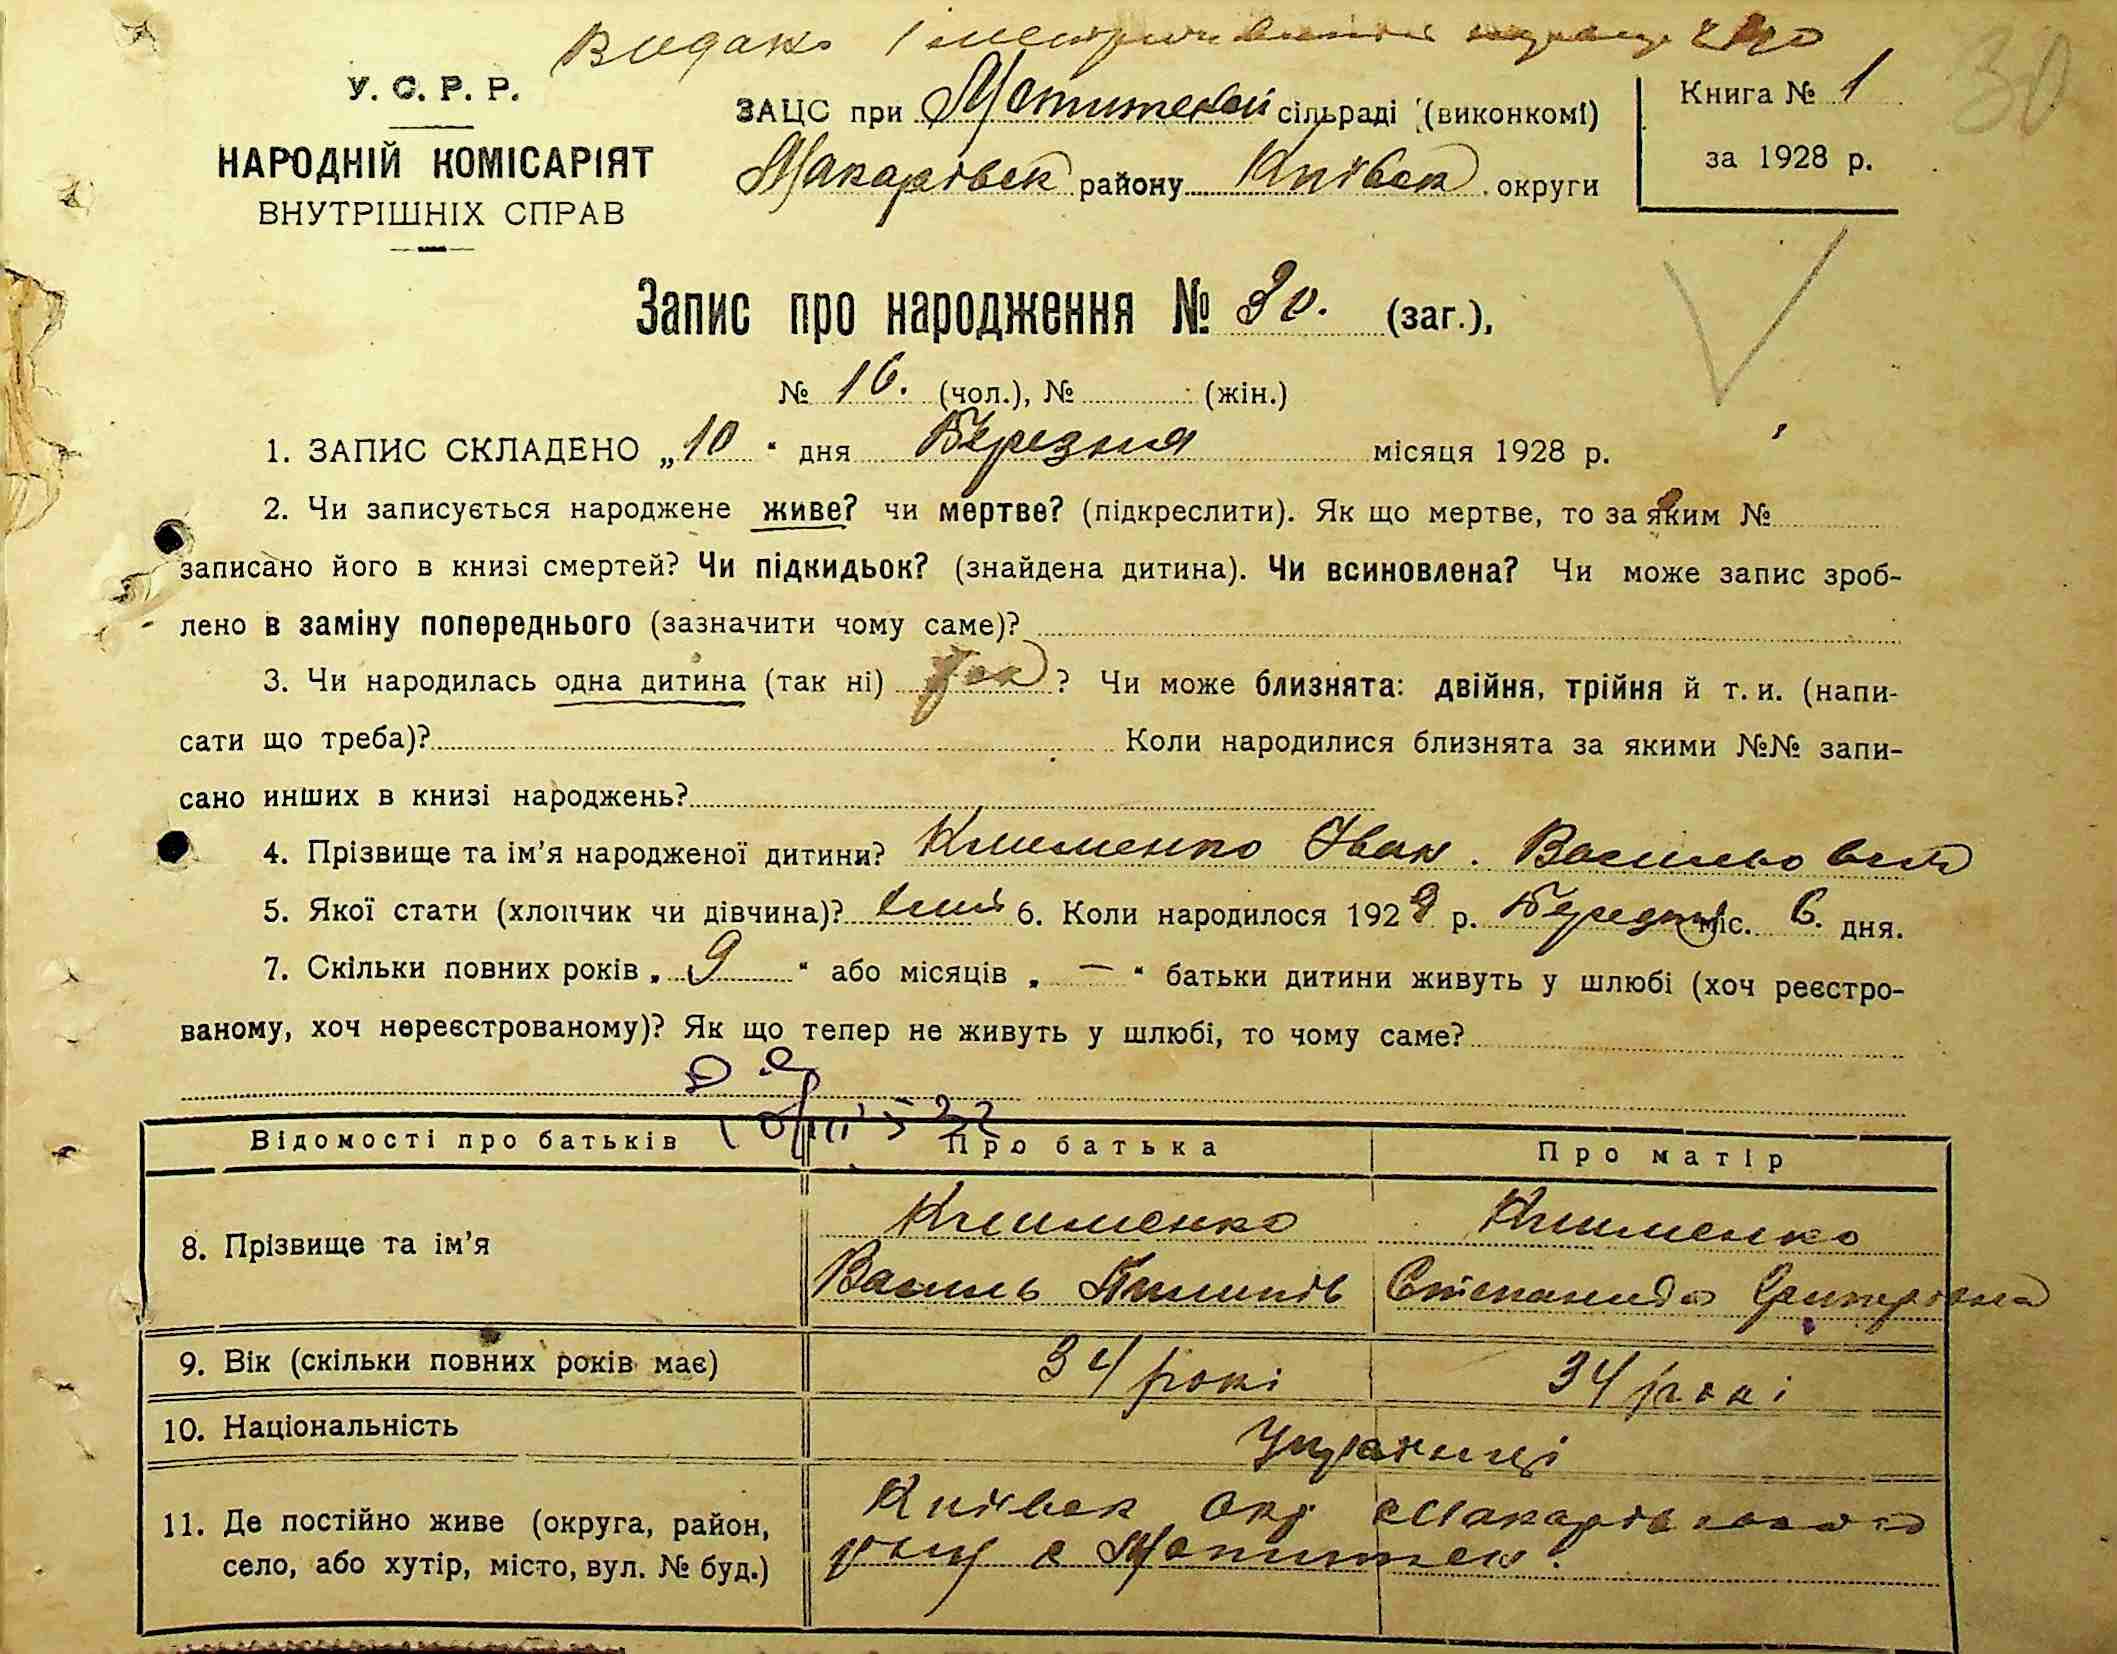 Видано
У. С. Р. Р.
НАРОДНІЙ КОМІСАРІЯТ
ВНУТРІШНІХ СПРАВ
ЗАЦС при сільраді (виконкомі)
Макарівськ району Київськ округи
Книга № 1
за 1928 р.
30
Запис про народження № 30. (заг.),
№ 16. (чол.), № (жін.)
1. ЗАПИС СКЛАДЕНО „10“ дня Березня місяця 1928 р.
2. Чи записується народжене живе? чи мертве? (підкреслити). Як що мертве, то за яким №
записано його в книзі смертей? Чи підкидьок? (знайдена дитина). Чи всиновлена? Чи може запис зроб-
лено в заміну попереднього (зазначити чому саме)?
3. Чи народилась одна дитина (так ні) так? Чи може близнята: двійня, трійня й т. и. (напи-
сати що треба)? Коли народилися близнята за якими №№ запи-
сано инших в книзі народжень?
4. Прізвище та ім’я народженої дитини? Клименко Іван. Васильович
5. Якої стати (хлопчик чи дівчина)? 6. Коли народилося 1928 р. Березня міс. 6. дня.
7. Скільки повних років „ 9 “ або місяців „ — “ батьки дитини живуть у шлюбі (хоч реєстро-
ваному, хоч нереєстрованому)? Як що тепер не живуть у шлюбі, то чому саме?
Відомості про батьків Про батька Про матір
8. Прізвище та ім’я Клименко Клименко
Василь Пилипів Степанида
9. Вік (скільки повних років має) 34 роки 34 роки
10. Національність Українці
11. Де постійно живе (округа, район, Київськ окр Макарівського
село, або хутір, місто, вул. № буд.) с